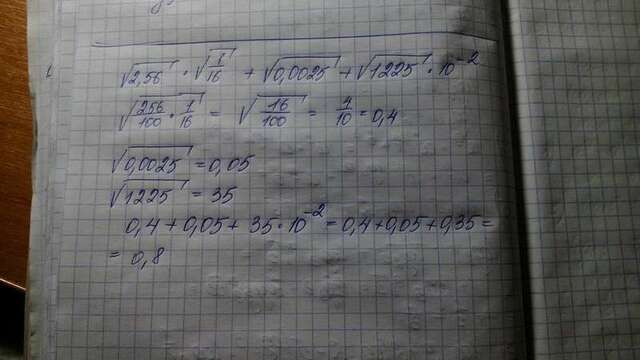 √2,56 · √1/16 + √0,0025 + √1225 · 10⁻²
√256/100 · 1/16 = √16/100 = 4/10 = 0,4
√0,0025 = 0,05
√1225 = 35
0,4 + 0,05 + 35 · 10⁻² = 0,4 + 0,05 + 0,35 =
= 0,8